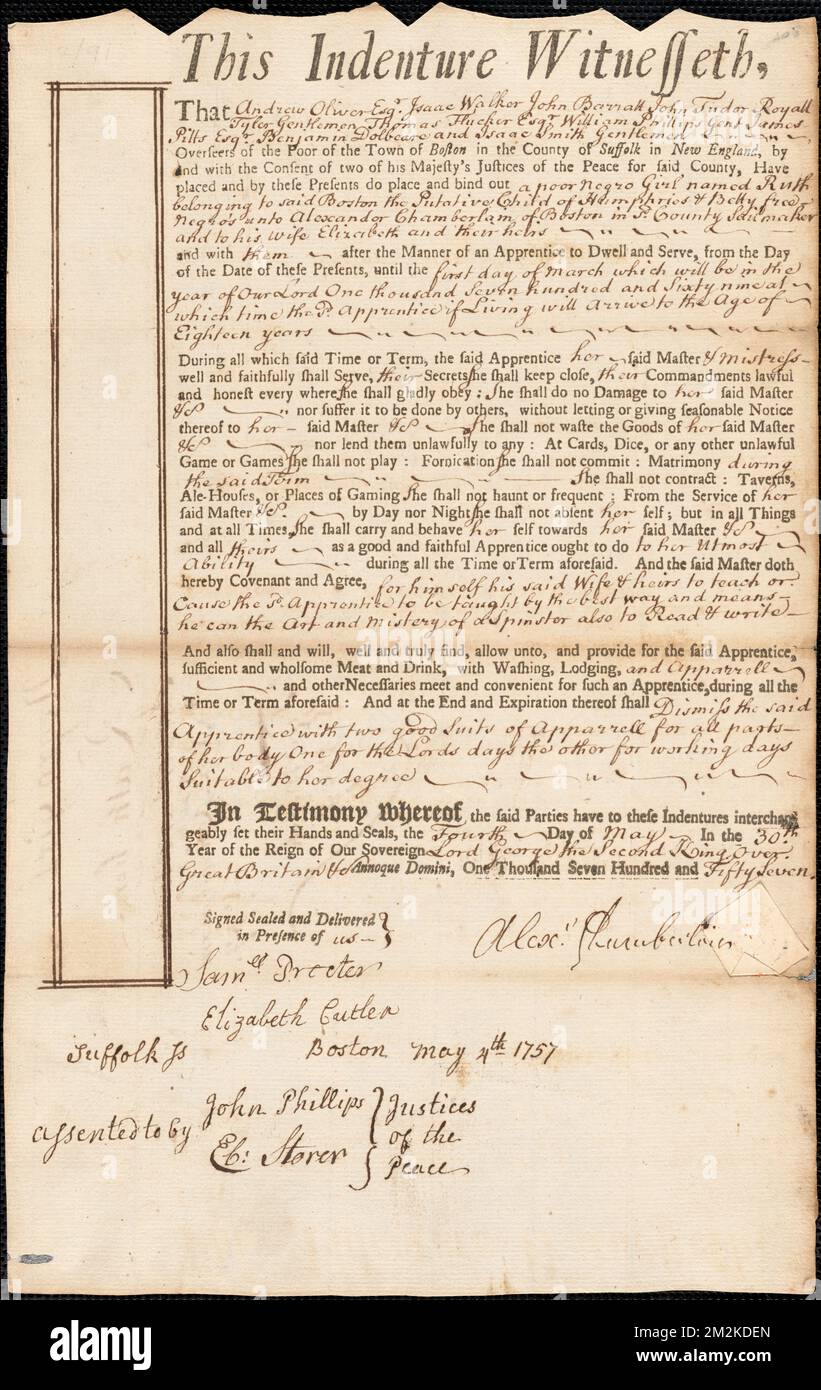 This Indenture Witnesseth,
That Andrew Oliver Esqr. Isaac Walker John Barratt John Tudor Royall
Tyler Gentlemen Thomas Flucker Esqr. William Phillips Gent James
Pitts Esqr. Benjamin Dolbeare and Isaac Smith Gentlemen
Overseers of the Poor of the Town of Boston in the County of Suffolk in New England, by
and with the Consent of two of his Majesty's Justices of the Peace for said County, Have
placed and by these Presents do place and bind out a poor Negro Girl named Ruth
belonging to said Boston the Putative Child of Humphries & Betty free
Negro's unto Alexander Chamberlain of Boston in sd. County Sailmaker
and to his Wife Elizabeth and their heirs
and with them after the Manner of an Apprentice to Dwell and Serve, from the Day
of the Date of these Presents, until the first day of March which will be in the
year of Our Lord One thousand Seven hundred and Sixty nine at
which time the sd. Apprentice if Living will Arrive to the Age of
Eighteen years
During all which said Time or Term, the said Apprentice her said Master & Mistress
well and faithfully shall Serve, their Secrets she shall keep close, their Commandments lawful
and honest every where she shall gladly obey: She shall do no Damage to her said Master
&c nor suffer it to be done by others, without letting or giving seasonable Notice
thereof to her said Master &c She shall not waste the Goods of her said Master
&c nor lend them unlawfully to any: At Cards, Dice, or any other unlawful
Game or Games she shall not play: Fornication she shall not commit: Matrimony during
the said Term She shall not contract: Taverns,
Ale-Houses, or Places of Gaming she shall not haunt or frequent: From the Service of her
said Master &c. by Day nor Night she shall not absent her self; but in all Things
and at all Times, she shall carry and behave her self towards her said Master &c
and all theirs as a good and faithful Apprentice ought to do to her Utmost
Ability during all the Time or Term aforesaid. And the said Master doth
hereby Covenant and Agree, for himself his said Wife & heirs to teach or
Cause the sd. Apprentice to be taught by the best way and means
he can the Art and Mistery of a Spinster also to Read & write
And also shall and will, well and truly find, allow unto, and provide for the said Apprentice,
sufficient and wholsome Meat and Drink, with Washing, Lodging, and Apparrell
and other Necessaries meet and convenient for such an Apprentice, during all the
Time or Term aforesaid: And at the End and Expiration thereof shall Dismiss the said
Apprentice with two good Suits of Apparrell for all parts
of her body One for the Lords days the other for working days
Suitable to her degree
In Testimony whereof, the said Parties have to these Indentures interchan
geably set their Hands and Seals, the Fourth Day of May In the 30th
Year of the Reign of Our Sovereign Lord George the Second King Over
Great Britain &c Annoque Domini, One Thousand Seven Hundred and Fifty Seven.
Signed Sealed and Delivered
in Presence of us
Alexr. Chamberlain
Samll Procter
Elizabeth Cutler
Suffolk ss Boston May 4th 1757
assented to by John Phillips Justices
Eb: Storer of the
Peace
alamy
alamy
Image ID: 2M2KDEN
www.alamy.com